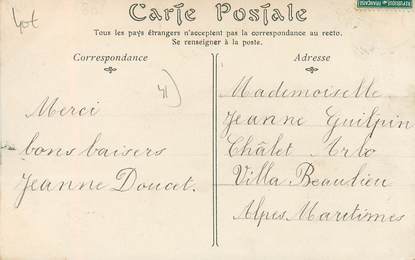 Carte Postale
Tous les pays étrangers n'acceptent pas la correspondance au recto.
Se renseigner à la poste.
Correspondance
Adresse
Merci
bons baisers
Jeanne Doucet.
Mademoiselle
Jeanne Guilpin
Châlet Arlo
Villa Beaulieu
Alpes Maritimes